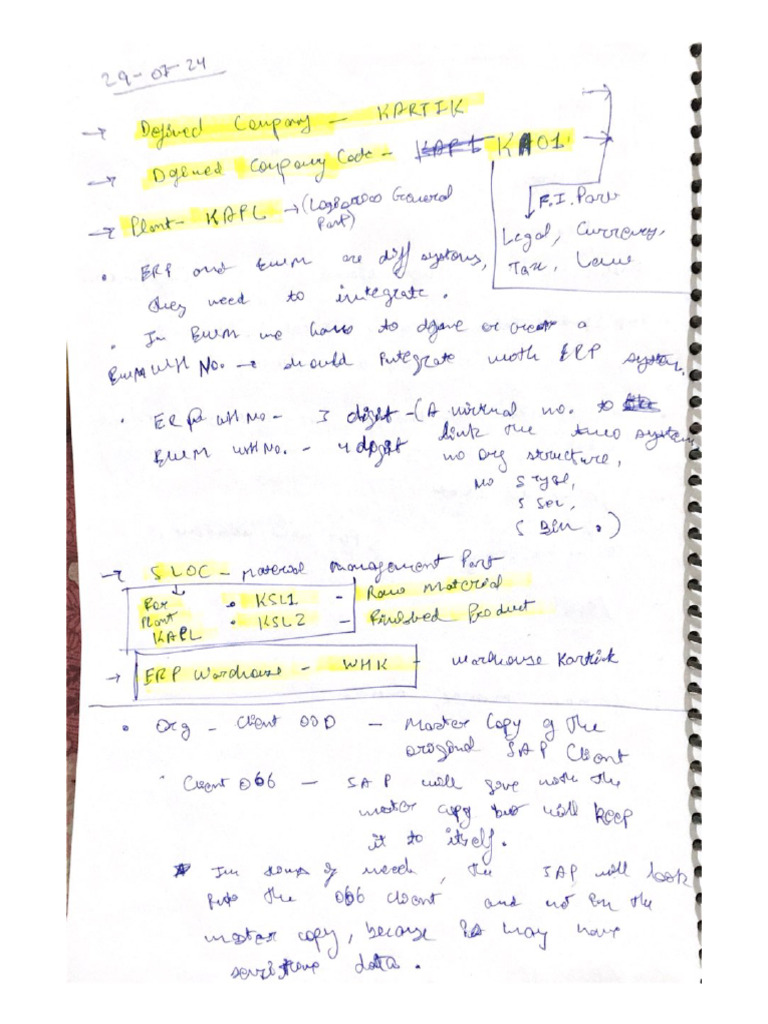 29-07-24
→ Defined Company - KARTIK
→ Defined Company Code - KAP1 KA01
→ Plant - KAPL → (Logistics General
Part)
F.I. Part
Legal, Currency,
Tax, Law
• ERP and EWM are diff systems,
they need to integrate.
• In EWM we have to define or create a
EWM WH No. → should integrate with ERP system.
• ERP WH No - 3 digit - (A virtual no. to
link the two system,
EWM WH No. - 4 digit no org structure,
no S Type,
S Sec,
S Bin.)
→ SLOC - Material Management Part
For • KSL1 - Raw Material
Plant • KSL2 - Finished Product
KAPL
→ ERP Warehouse - WHK - Warehouse Kartik
• Org - Client 000 - Master Copy of the
original SAP Client
• Client 066 - SAP will give with the
master copy but will keep
it to itself.
* In times of need, the SAP will look
into the 066 client and not in the
master copy, because it may have
sensitive data.